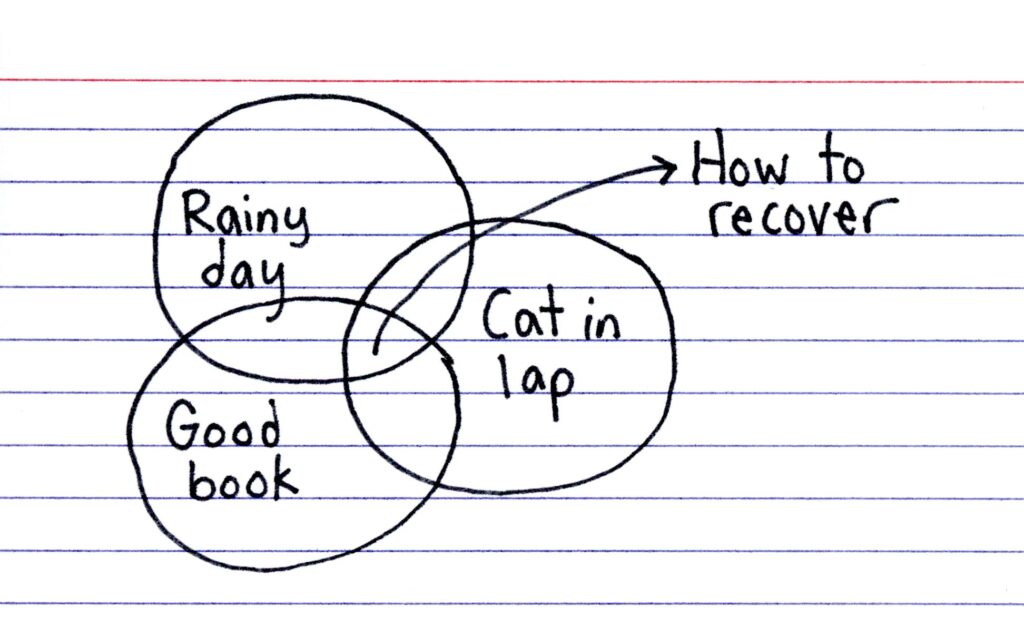 Rainy
day
How to
recover
Cat in
lap
Good
book